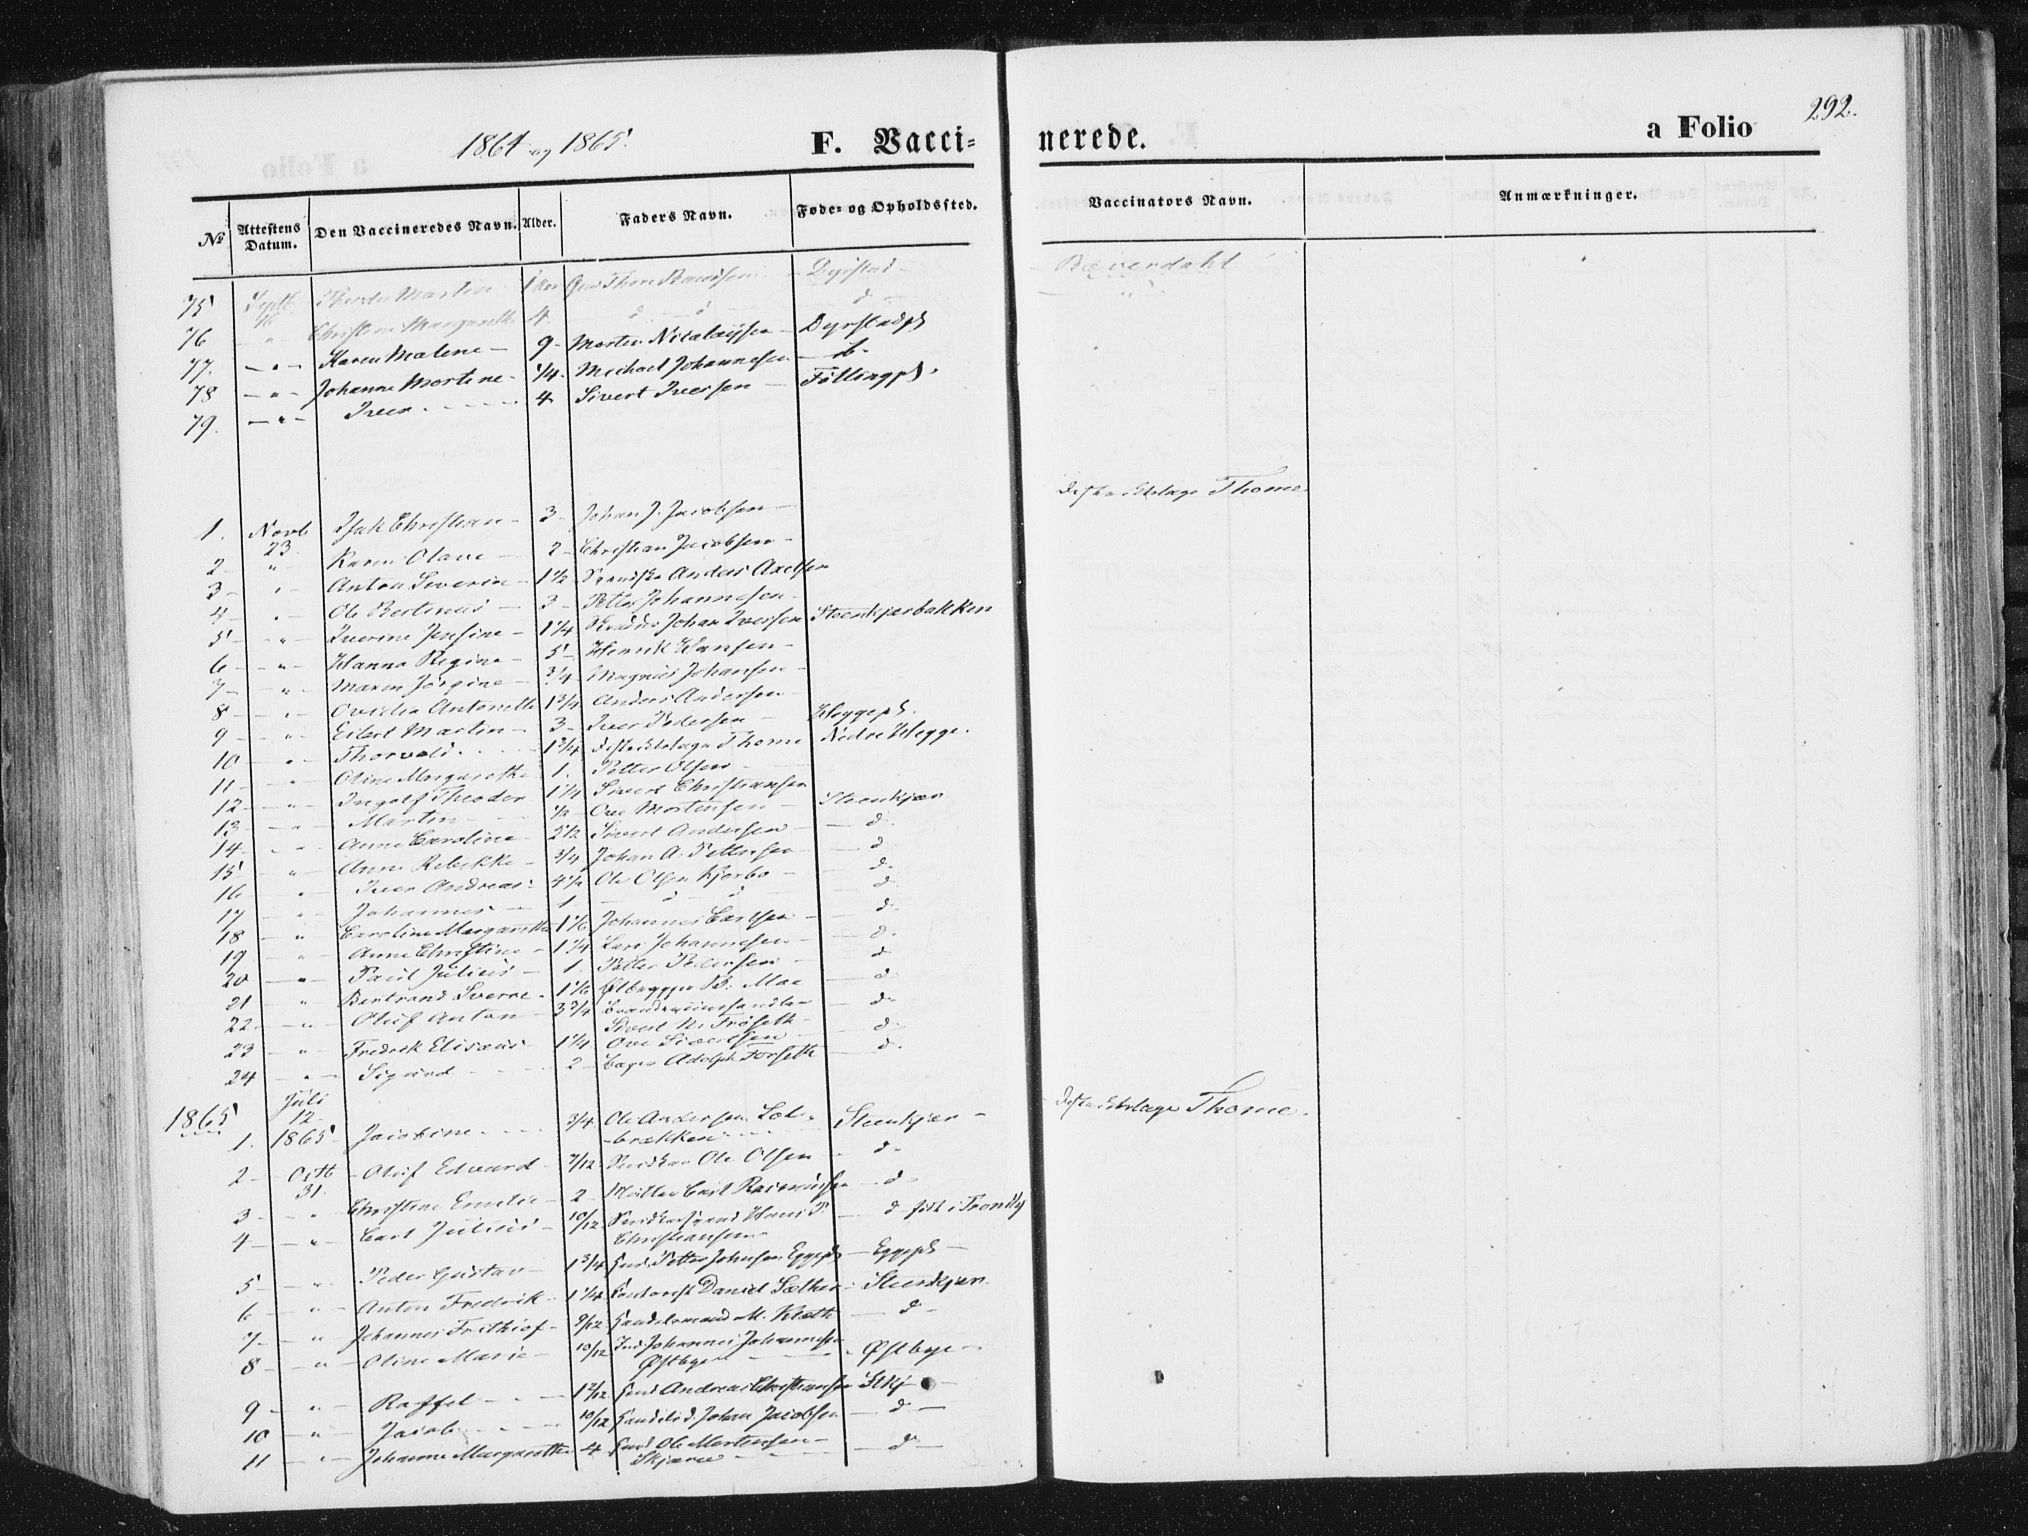 1864 og 1865.
F. Vacci=
nerede.
a Folio
292.
No
Attestens Datum.
Den Vaccineredes Navn.
Alder.
Faders Navn.
Føde= og Opholdssted.
Vaccinators Navn.
Anmærkninger.
75 Septb 16 Martin Dyrstad Bæverdahl
76 " Christine Margareth 4 d d d
77. " Karen Malene 9 Morten Nicolaysen Dyrstadpl
78 " Johanne Mortine 1/4 Michael Johannesen d
79. " Iver 4 Sivert Iversen Føllingpl.
1. Novb 23. Isak Christian 3 Johan J. Jacobsen Distriktslæge Thome
2 " Karen Olave 2 Christian Jacobsen
3 " Anton Severin 1 1/2 Anders Axelsen
4 " Ole Bertinus 3 Petter Johannesen
5 " Iverine Jensine 1 1/4 Johan Iversen Steenkjærbakken
6 " Hanna Regine 5 Henrik Hansen
7 " Maren Jörgine 3/4 Magnus Johansen
8 " Ovidia Antonette 1 3/4 Anders Andersen
9 " Eilert Martin 3 Iver Pedersen Heggepl.
10 " Thorvald 1 3/4 Distriktslæge Thome Nedre Hegge.
11 " Oline Margarethe 1. Petter Olsen
12 " Ingolf Theodor 1 1/4 Sivert Christiansen
13 " Martin 1/2 Ove Mortensen Steenkjær
14 " Anne Caroline 5 1/2 Sivert Andersen d
15 " Anne Rebekke 3/4 Johan A. Pettersen d
16 " Iver Andreas 4 1/2 Ole Olsen Kjerbo d
17 " Johannes 1 d d d
18 " Caroline Margarethe 1 1/6 Johannes Carlsen d
19 " Anne Christine 1 1/4 Lars Johannesen d
20 " Paul Julius 1. Petter Pedersen d
21 " Bertrand Sverre 1 1/6 Ølbrygger B. Moe d
22 " Oluf Anton 3 3/4 Brændeviinshandler Sivert N. Frøseth d
23 " Fredrik Elisæus 1 1/4 Ove Sivertsen d
24 " Sigurd 2 Bager Adolph Forseth d
1865
1. Juli 12 1865 Jacobine 3/4 Ole Andersen Løbrækken Steenkjær Distriktslæge Thome.
2 Octb 31. Oluf Edvard 7/12 Snedker Ole Olsen d
3 " Christine Emilie 2 Møller Carl Rasmussen d
4 " Carl Julius 10/12 Snedkersvend Hans P. Christiansen d født i Trondhj
5 " Peder Gustav 1 3/4 Petter Johnsen Eggepl Eggepl
6 " Anton Fredrik 1 1/4 Daniel Sæther Steenkjær
7 " Johannes Frithiof 9/12 Handelsmand M. Klæth d
8 " Oline Marie 10/12 Johannes Johannesen Østbye Østbye
9 " Raffel 1 2/12 Andreas Christiansen Stkj
10 " Jacob 10/12 Johan Jacobsen d
11 " Johanne Margarethe 4 Ole Mortensen Skjærve d